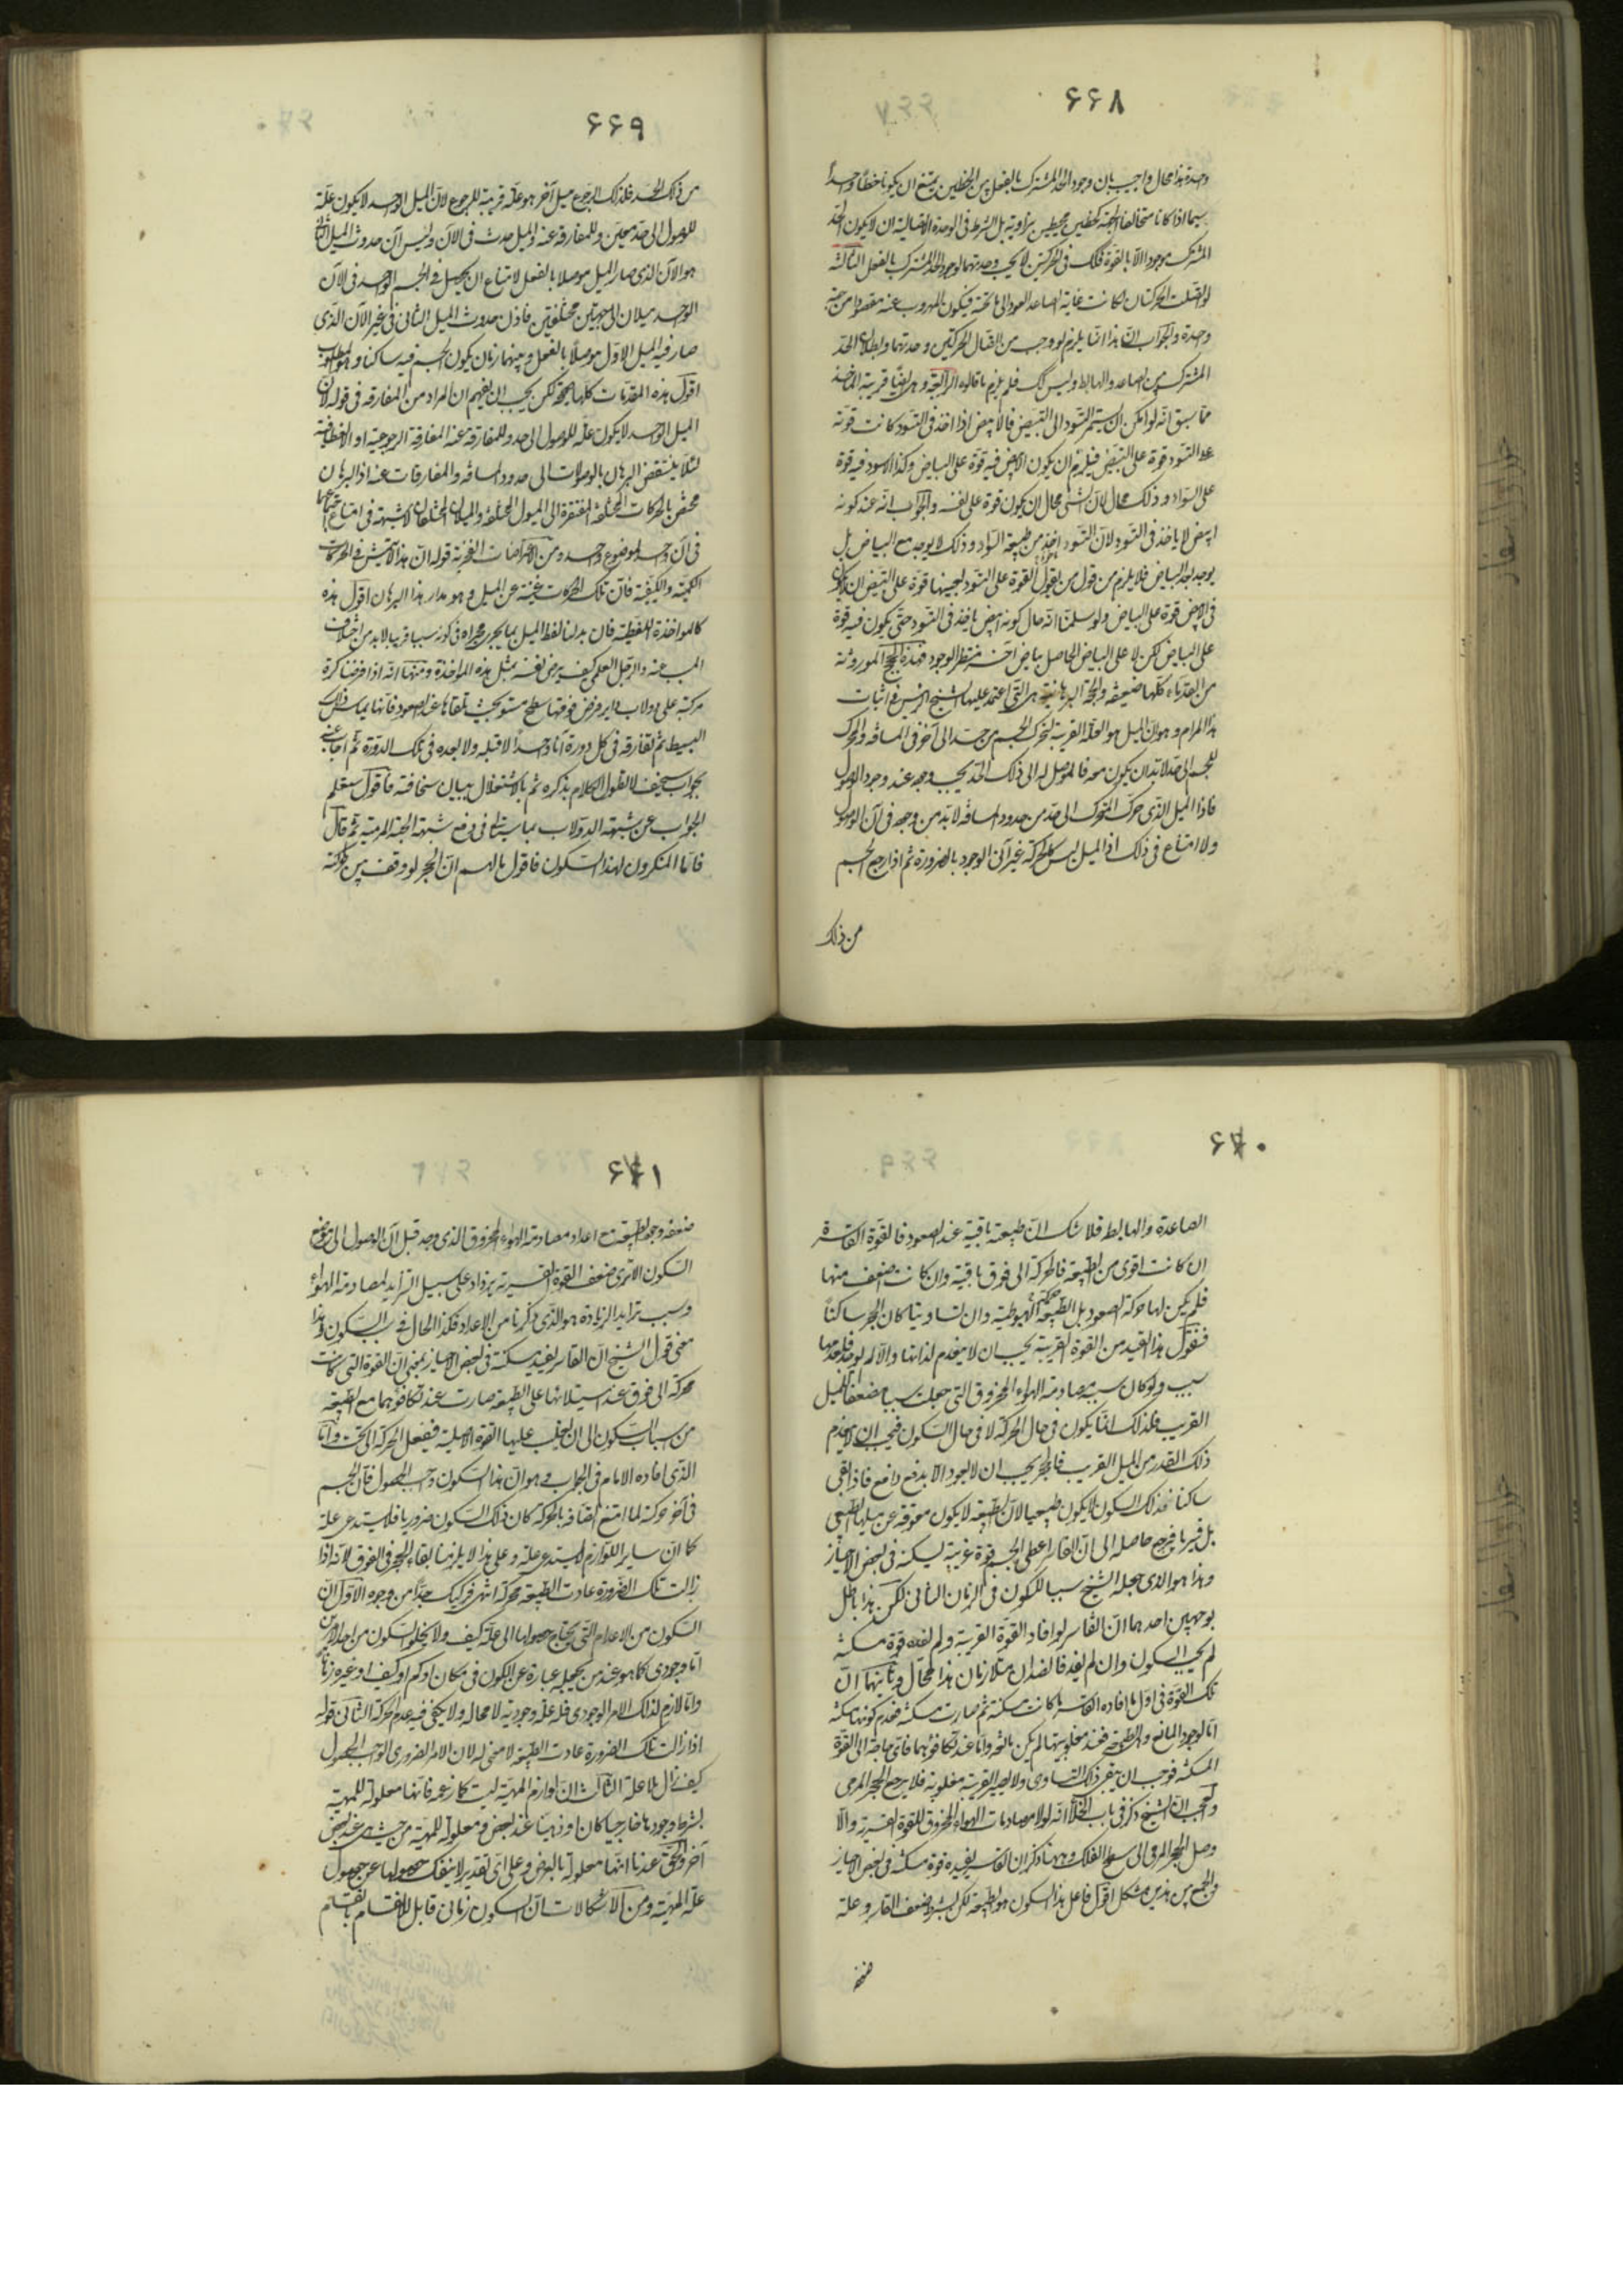 ۶۶۸
وحدة هذا محال واجيب بان وجود الحد المشترك بالفعل بين الخطين يمتنع ان يكونا خطا واحدا
سيما اذا كانا متخالفا الجهة كخطين محيطين بزاوية بل الشرط في الوحدة الاتصالية ان لا يكون الحد
المشترك موجودا الا بالقوة فكذلك في الحركتين لا يجب وحدتهما لوجود الحد المشترك بالفعل الثالثة
لو اتصلت الحركتان لكانت غاية الصاعد العود الى ما تحته فيكون المهروب عنه مقصودا من جهة
وحدة والجواب ان هذا انما يلزم لو وجب من اتصال الحركتين وحدتهما وابطال الحد
المشترك بين الصاعد والهابط وليس كك فلم يلزم ما قالوه الرابعة وهي ايضا قريبة الماخذ
مما سبق انه لو امكن ان يستمر التسود الى التبيض فالابيض اذا اخذ في التسود كانت قوته
على التسود قوة على التبيض فيلزم ان يكون الابيض فيه قوة على البياض وكذا الاسود فيه قوة
على السواد وذلك محال لان الشئ محال ان يكون قوة على نفسه والجواب انه عند كونه
ابيض لا ياخذ في التسود لان التسود اخذ من طبيعة السواد وذلك لا يوجد مع البياض بل
يوجد بعد البياض فلا يلزم من قول من يقول القوة على التسود بعينها قوة على التبيض ان يكون
في الابيض قوة على البياض ولو سلمنا انه حال كونه ابيض ياخذ في التسود حتى يكون فيه قوة
على البياض لكن لا على البياض الحاصل بياض آخر منتظر الوجود فهذه الحجج الموروثة
من القدماء كلها ضعيفة والحجة البرهانية هي التي اعتمد عليها الشيخ الرئيس في اثبات
هذا المرام وهو ان الميل هو العلة القريبة لتحرك الجسم من حد الى آخر في المسافة والمحرك
للجسم الى حد لا بد ان يكون معه فالموصل له الى ذلك الحد يجب وجوده عند وجود الوصول
فاذا الميل الذي حرك المتحرك الى حد من حدود المسافة لا بد من وجوده في آن الوصول
ولا امتناع في ذلك اذ الميل ليس كالحركة غير آني الوجود بالضرورة ثم اذا رجع الجسم
من ذلك
۶۶۹
من ذلك الحد فلذلك الرجوع ميل آخر هو علة قريبة للرجوع لان الميل الواحد لا يكون علة
للوصول الى حد معين وللمفارقة عنه والميل حدث في الان وليس آن حدوث الميل الثاني
هو الآن الذي صار الميل موصلا بالفعل لامتناع ان يحصل في الجسم الواحد في الآن
الواحد ميلان الى جهتين مختلفتين فاذن حدوث الميل الثاني في غير الآن الذي
صار فيه الميل الاول موصلا بالفعل وبينهما زمان يكون الجسم فيه ساكنا وهو المطلوب
اقول هذه المقدمات كلها صحيحة لكن يجب ان يفهم ان المراد من المفارقة في قوله لان
الميل الواحد لا يكون علة للوصول الى حد وللمفارقة عنه المفارقة الرجوعية او الانعطافية
لئلا ينتقض البرهان بالوصولات الى حدود المسافة والمفارقات عنه اذ البرهان
مختص بالحركات المختلفة المفتقرة الى الميول المختلفة والميلان المختلفان لا شبهة في امتناع اجتماعهما
في آن واحد لموضوع واحد ومن الاعتراضات الفخرية قوله ان هذا لا يتمشى في الحركات
الكمية والكيفية فان تلك الحركات غنية عن الميل وهو مدار هذا البرهان اقول هذه
كالمواخذة اللفظية فان بدلنا لفظ الميل بما يجري مجراه في كونه سببا قريبا لا بد من اختلاف
المسبب عنه والرجل العلمي كيف يرضى نفسه بمثل هذه المواخذة ومنها انه اذا فرضنا كرة
مركبة على دولاب داير وفرض فوقها سطح مستو بحيث تلقاها عند الصعود فانها تماس ذلك
البسيط ثم تفارقه في كل دورة آنا واحدا لا قبله ولا بعده في تلك الدورة ثم اجاب عنه
بجواب سخيف لا نطول الكلام بذكره ثم بالاشتغال ببيان سخافته فاقول سيعلم
الجواب عن شبهة الدولاب بما سياتي في دفع شبهة الحبة المرمية ثم قال
فاما المنكرون لهذا السكون فاقول مالهم ان الحجر لو وقف بين حركته
۶۷۰
الصاعدة والهابطة فلا شك ان طبيعته باقية عند الصعود فالقوة القاسرة
ان كانت اقوى من الطبيعة فالحركة الى فوق باقية وان كانت اضعف منها
فلم يكن لها حركة الصعود بل الطبيعة حركته الهبوطية وان تساويتا كان الحجر ساكنا
فنقول هذا القدر من القوة الغريبة يجب ان لا ينعدم لذاتها والا لم يوجد فلعدمها
سبب ولو كان سببه مصادمة الهواء المخروق التي جعلت سببا مضعفا للميل
الغريب فلذلك انما يكون في حال الحركة لا في حال السكون فيجب ان لا ينعدم
ذلك القدر من الميل الغريب فالحجر يجب ان لا يعود الا بدفع دافع فاذا بقي
ساكنا فذلك السكون لا يكون طبيعيا لان الطبيعة لا يكون معوقة عن ميلها الطبيعي
بل قسريا فيرجع حاصله الى ان القاسر اعطى الجسم قوة غريبة ليسكنه في بعض الاحياز
وهذا هو الذي جعله الشيخ سببا للسكون في الزمان الثاني لكن هذا باطل
بوجهين احدهما ان القاسر لو افاد القوة الغريبة ولم يفده قوة مسكنة
لم يجب السكون وان لم يفد فالضدان متلازمان هذا محال وثانيهما ان
تلك القوة في اول ما افاده القاسر ما كانت مسكنة ثم صارت مسكنة فعدم كونها مسكنة
اما لوجود المانع وهو الطبيعة فعند مغلوبيتها لم يكن مانعة واما عند تكافؤهما فاي حاجة الى القوة
المسكنة فوجب ان يتقرر ذلك التساوي ولا يصير الغريبة مغلوبة فلا يرجع الحجر المرمي
والعجب ان الشيخ ذكر في باب الخلاء انه لولا مصادمات الهواء المخروق للقوة القسرية والا
وصل الحجر المرمي الى سطح الفلك وههنا ذكر ان القاسر يفيده قوة مسكنة في بعض الاحياز
والجمع بين هذين مشكل اقول فاعل هذا السكون هو الطبيعة لكن بشرط ضعف القاسر وعلة
ضعفه
۶۷۱
ضعفه وجود الطبيعة مع اعداد مصادمة الهواء المخروق الذي وجد قبل آن الوصول الى موضع
السكون الا ترى ضعف القوة القسرية يزداد على سبيل التزايد لمصادمة الهواء
وسبب تزايد الزيادة هو الذي ذكرنا من الاعداد فكذا الحال في سبب السكون وهذا
معنى قول الشيخ ان القاسر يفيد مسكنة في بعض الاحياز بمعنى ان القوة التي كانت
محركة الى فوق عند استيلائها على الطبيعة صارت عند تكافؤهما مع الطبيعة
من اسباب السكون الى ان يغلب عليها القوة الاصلية فيفعل الحركة الى تحت واما
الذي افاده الامام في الجواب وهو ان هذا السكون واجب الحصول فان الجسم
في آخر حركته لما امتنع اتصافه بالحركة كان ذلك السكون ضروريا فلا يستدعي علة
كما ان ساير اللوازم لا يستدعي علة وعلى هذا لا يلزمنا بقاء الحجر في الفوق لانه اذا
زالت تلك الضرورة عادت الطبيعة محركة انتهى فركيك جدا من وجوه الاول ان
السكون من الاعدام التي يحتاج حصولها الى علة كيف ولا يخلو السكون من احد الامرين
اما وجودي كما هو عند من يجعله عبارة عن الكون في مكان او كم او كيف او غيره زمانا
واما لازم لذلك الامر الوجودي فله علة وجودية لا محالة ولا يكفي فيه عدم الحركة الثاني قوله
اذا زالت تلك الضرورة عادت الطبيعة لا معنى له لان الامر الضروري الواجب الحصول
كيف زال بلا علة الثالث ان لوازم المهية ليست كما زعمه فانها معلولة للمهية
بشرط وجودها خارجيا كان او ذهنيا عند بعض ومعلولة للمهية من حيث هي عند بعض
آخر والحق عندنا انها معلولة بالعرض وعلى اي تقدير لا ينفك حصولها عن حصول
علة المهية ومن الاشكالات ان السكون زماني قابل للانقسام بانقسام